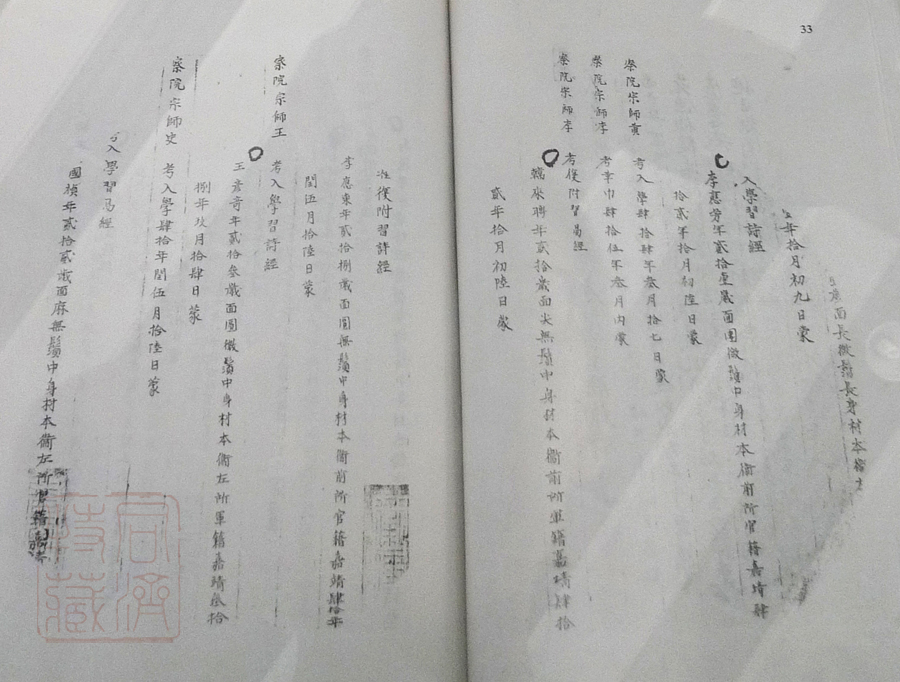 33
面長微鬚長身材本衛
年拾月初九日蒙
入學習詩經
李惠芳年貳拾壹歲面圓微鬚中身材本衛前所官籍嘉靖肆
拾貳年拾月初陸日蒙
察院宗師黃 考入學肆拾肆年叁月拾七日蒙
察院宗師李 考革巾肆拾伍年叁月內蒙
察院宗師李 考復附習易經
年貳拾歲面尖無鬚中身材本衛前所軍籍嘉靖肆拾
貳年拾月初陸日蒙
准復附習詩經
李應東年貳拾捌歲面圓無鬚中身材本衛前所官籍嘉靖肆拾年
閏伍月拾陸日蒙
察院宗師王 考入學習詩經
王彥奇年貳拾叁歲面圓微鬚中身材本衛左所軍籍嘉靖叁拾
捌年玖月拾肆日蒙
察院宗師史 考入學肆拾年閏伍月拾陸日蒙
入學習易經
國禎年貳拾貳歲面麻無鬚中身材本衛左所官籍
同濟
特藏